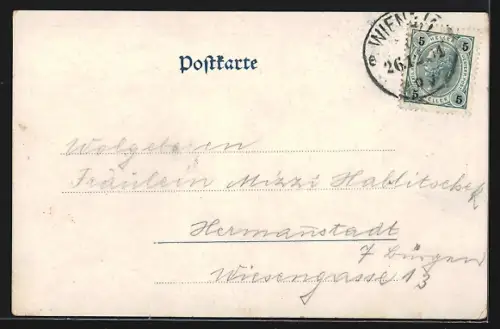 Postkarte
WIEN
26.12
5 HELLER 5
5 HELLER 5
Wolgeboren
Fräulein Mizzi Hablitschek
Hermanstadt
7 Bürgen
Wiesengasse 13